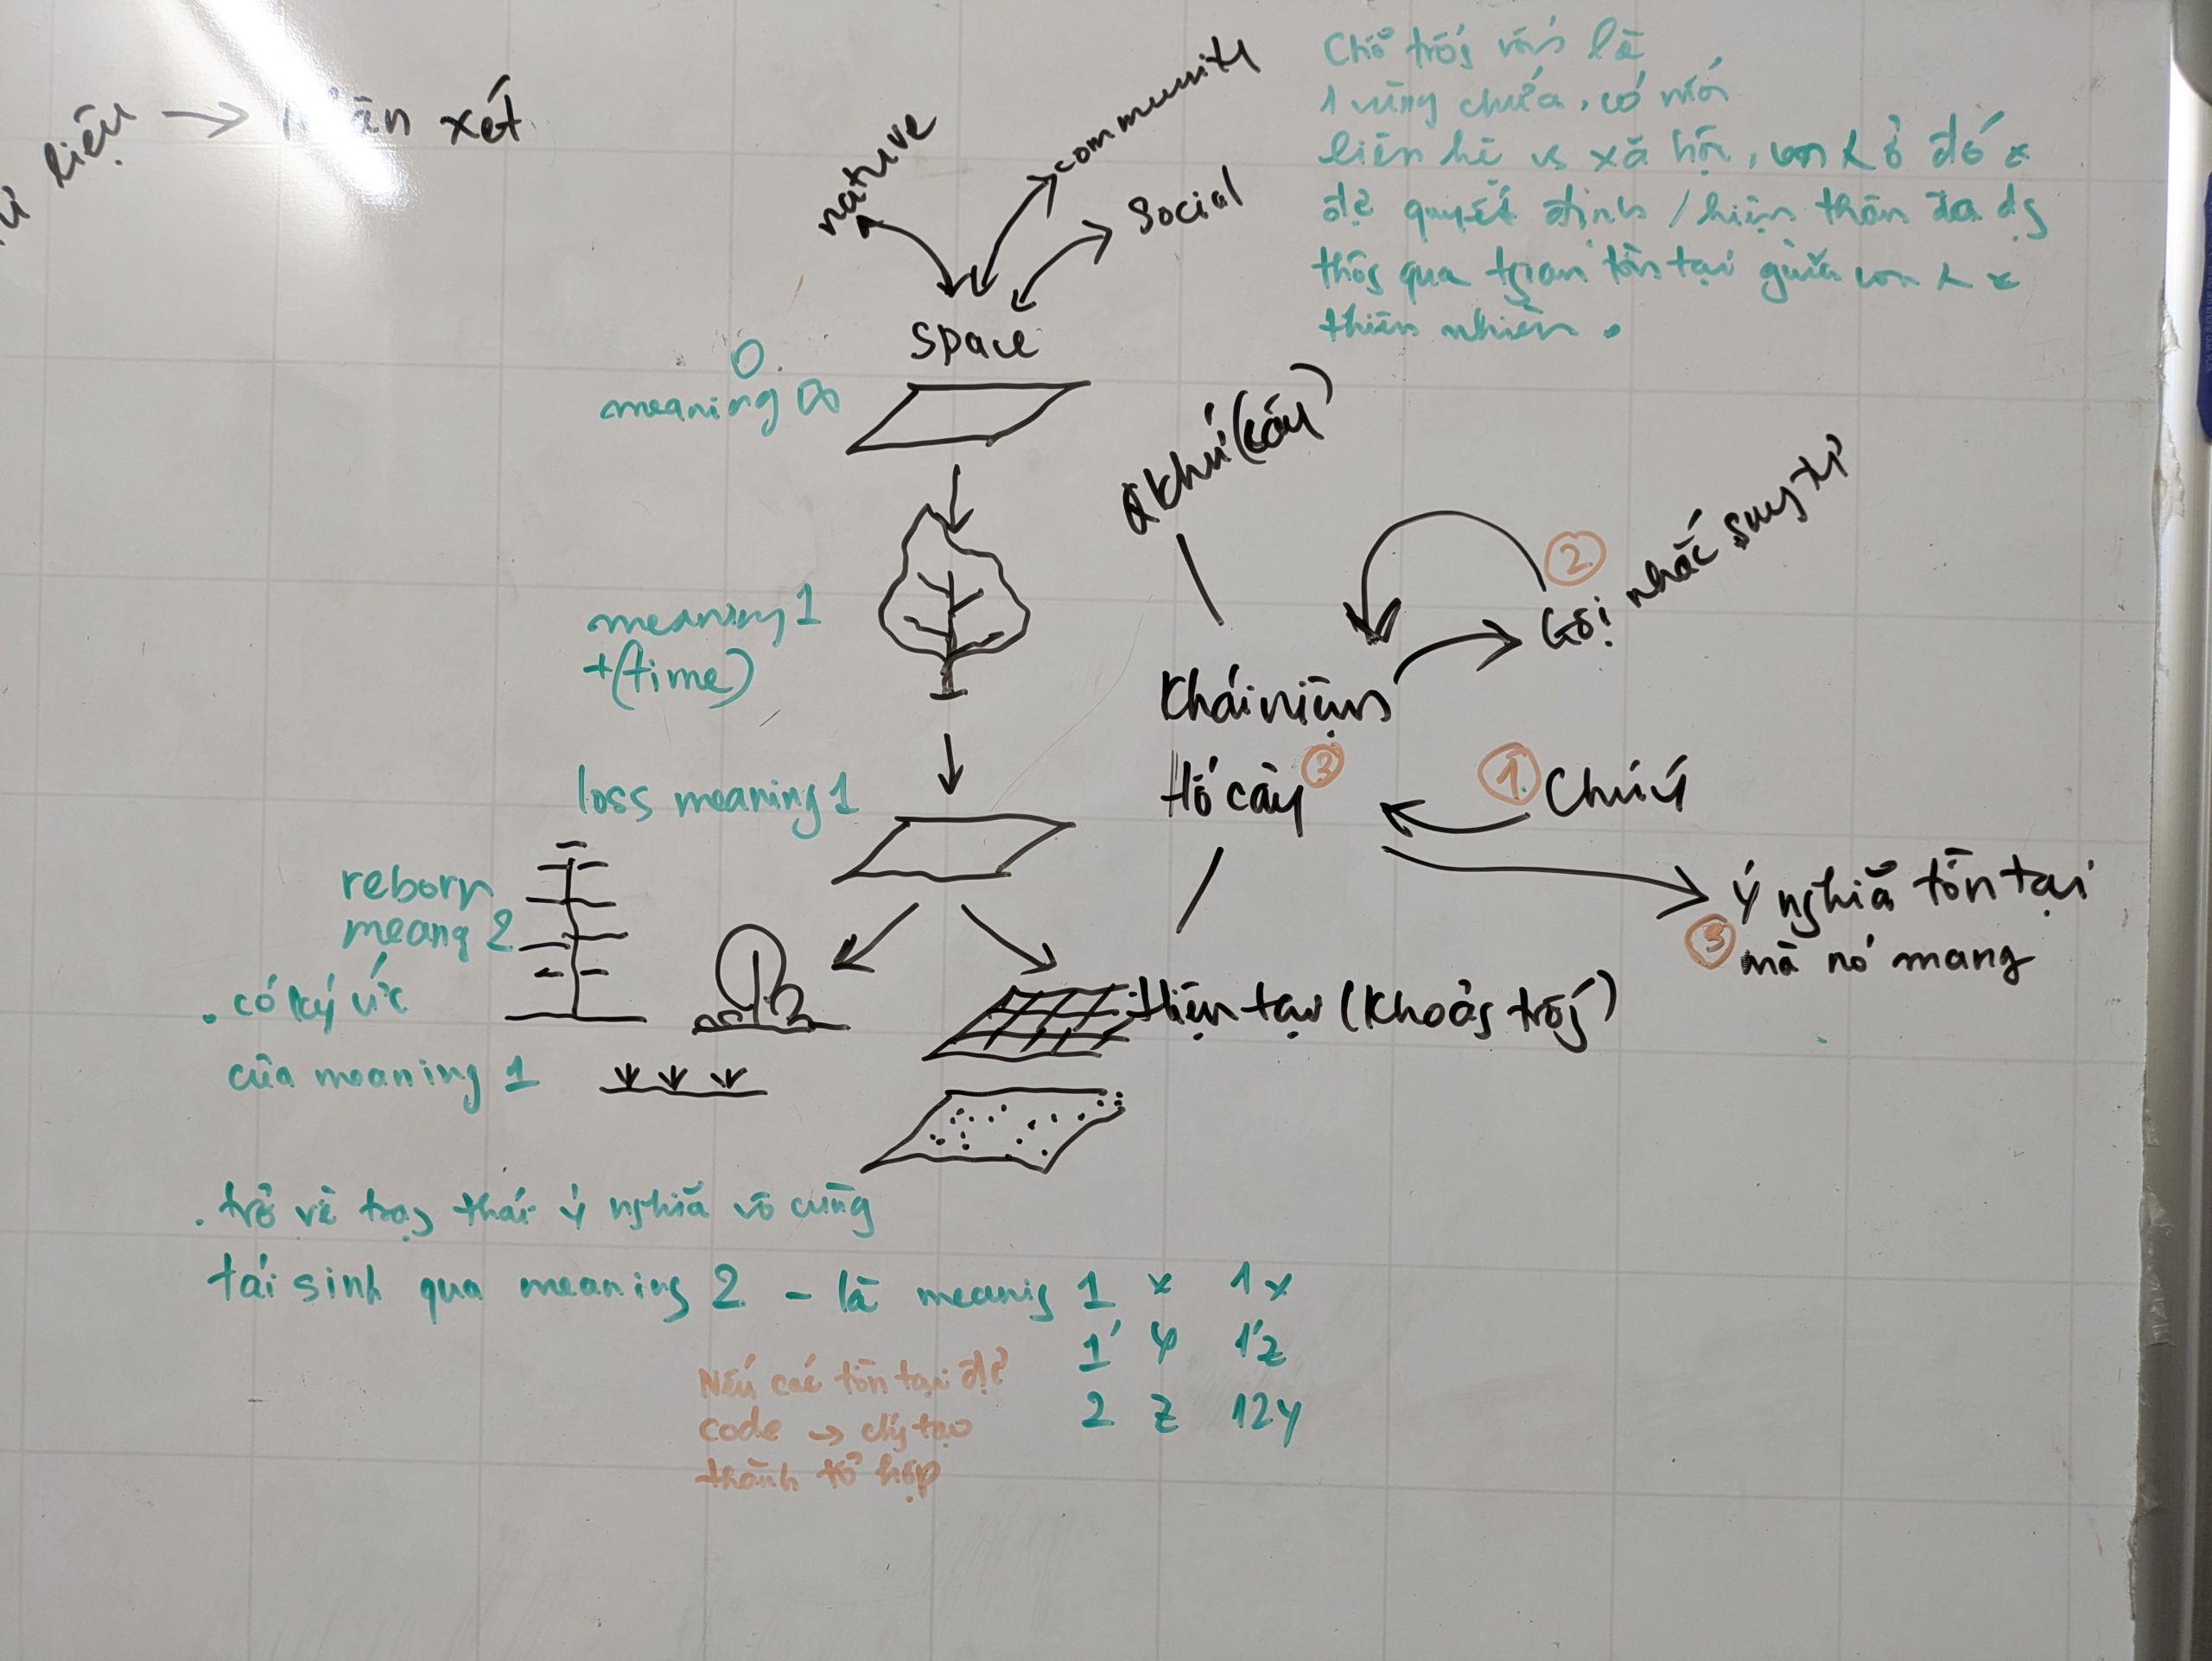 liệu → nhận xét
nature
community
Social
space
Chỗ trống vốn là
1 vùng chứa, có mối
liên hệ vs xã hội, con k ở đó
đc quyết định / hiện thân đa dg
thôg qua tgian tồn tại giữa con
thiên nhiên.
0
meaning ∞
Q khứ (cây)
meaning 1
+(time)
② Gợi nhắc suy
Khái niệm
Hố cây ③
① Chú ý
loss meaning 1
③ Ý nghĩa tồn tại
mà nó mang
reborn
meang 2
Hiện tại (Khoảg trốg)
. có ký ức
của meaning 1
. trở về trạg thái ý nghĩa vô cùng
tái sinh qua meaning 2 - là meanig 1 x 1x
1' y 1'z
2 z 12y
Nếu các tồn tại đc
code → chý tạo
thành tổ hợp